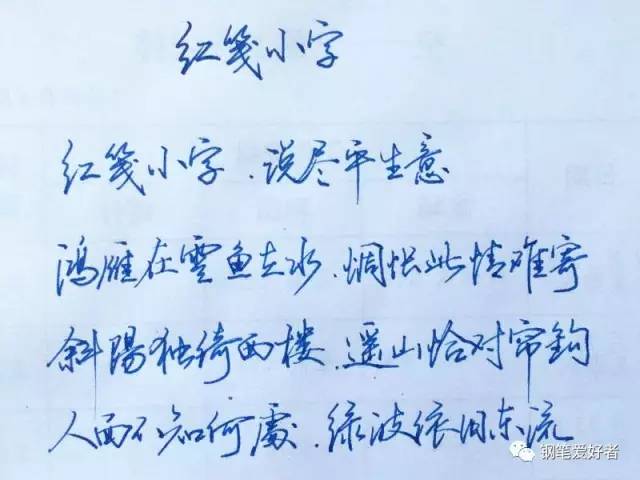 红笺小字
红笺小字.说尽平生意
鸿雁在雲鱼在水.惆怅此情难寄
斜陽独倚西楼.遥山恰对帘鈎
人面不知何處.绿波依旧东流
钢笔爱好者